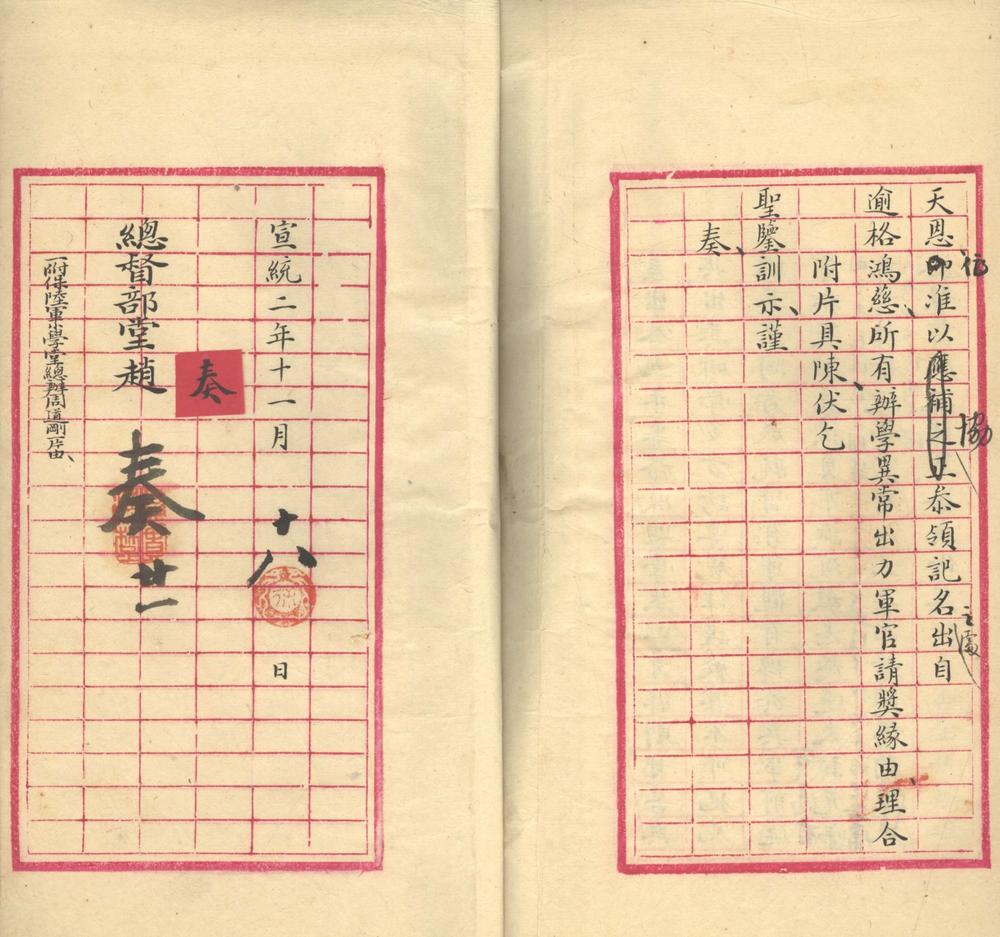 天恩、卽准以應補之正叅領記名出自
協
之處
逾格鴻慈、所有辦學異常出力軍官請獎緣由、理合
附片具陳、伏乞
聖鑒訓示、謹
奏、
宣統二年十一月十八日
奏
總督部堂趙奏廿一
一附保陸軍小學堂總辦周道剛一片由、